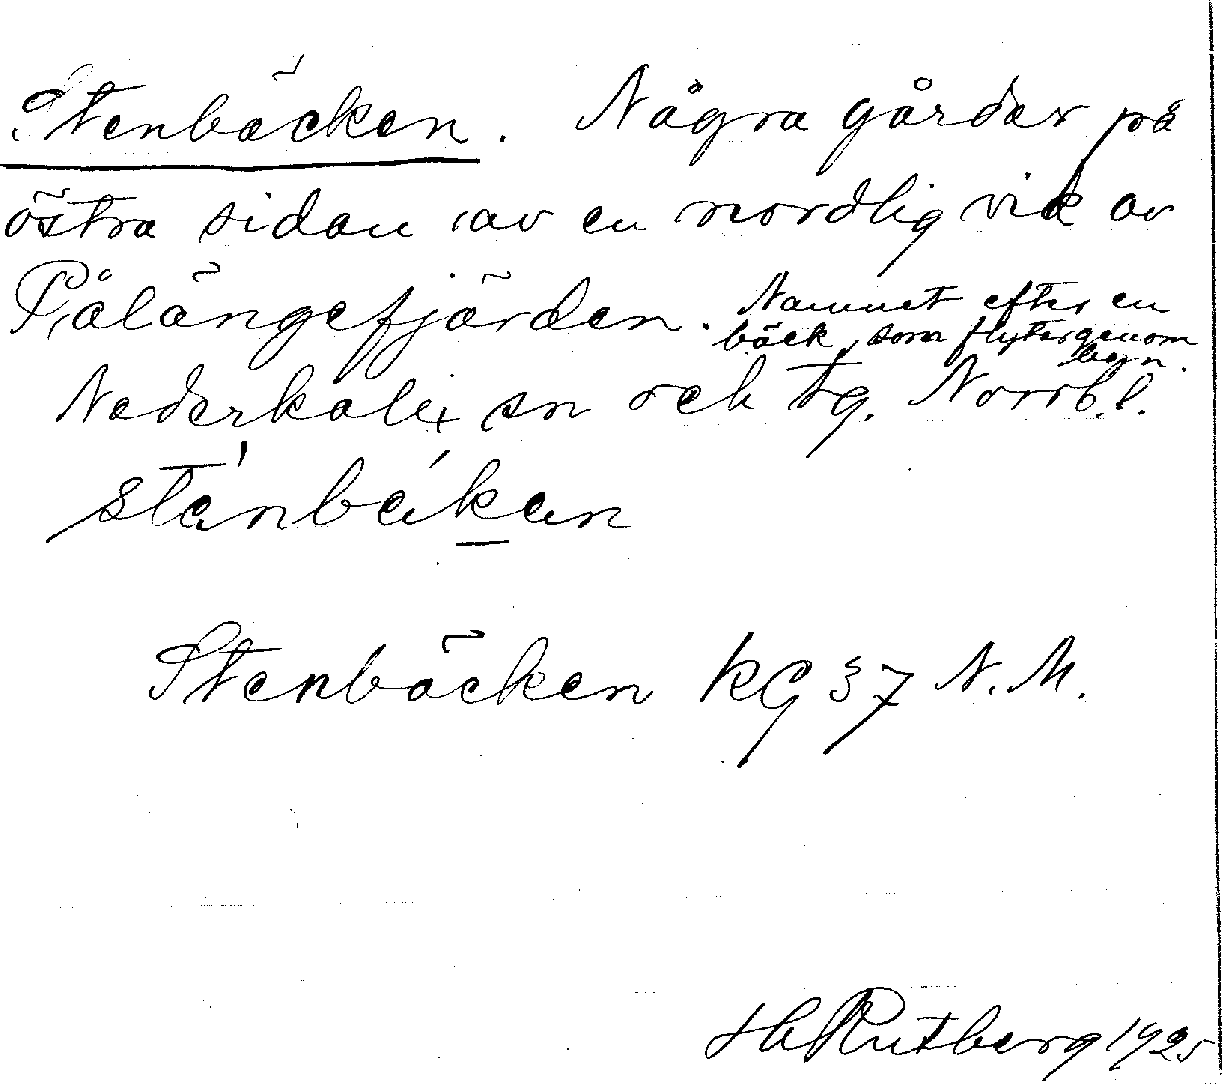 Stenbäcken. Några gårdar på
östra sidan av en nordlig vik av
Pålängefjärden. Namnet efter en
bäck, som flyter genom
byn.
Nederkalix sn och tg. Norrb.l.
Stenbäcken KG 37 N.M.
H Rutberg 1925